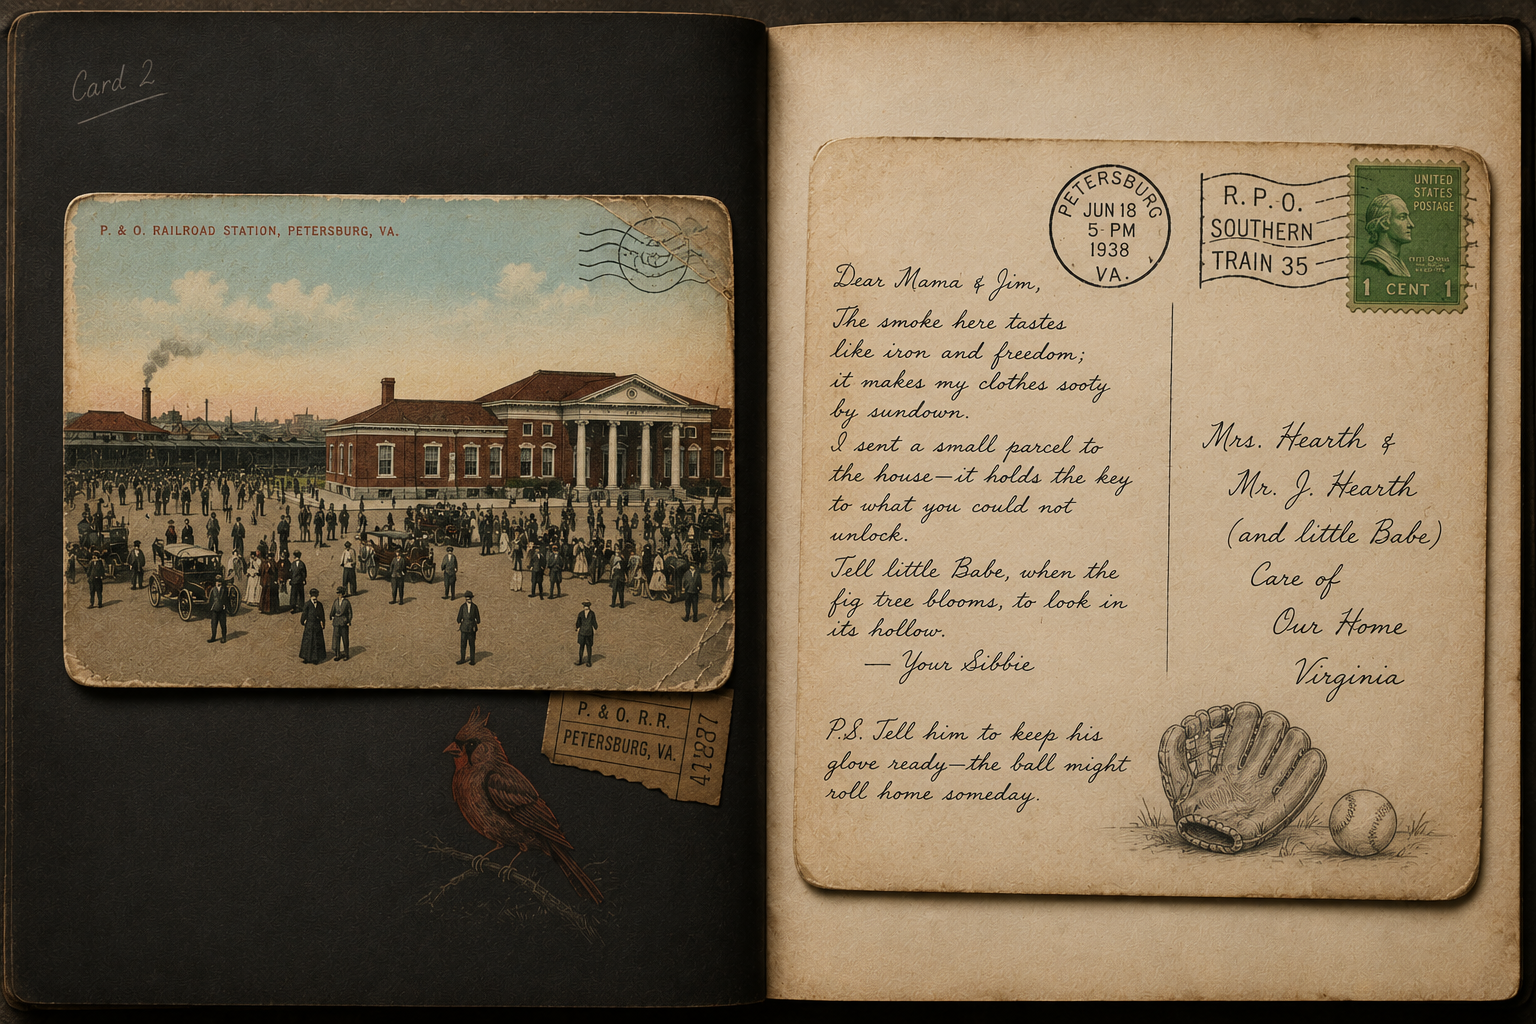 Card 2
P. & O. RAILROAD STATION, PETERSBURG, VA.
P. & O. R.R.
PETERSBURG, VA.
41887
PETERSBURG
JUN 18
5- PM
1938
VA.
R.P.O.
SOUTHERN
TRAIN 35
UNITED
STATES
POSTAGE
1 CENT 1
Dear Mama & Jim,
The smoke here tastes
like iron and freedom;
it makes my clothes sooty
by sundown.
I sent a small parcel to
the house—it holds the key
to what you could not
unlock.
Tell little Babe, when the
fig tree blooms, to look in
its hollow.
— Your Sibbie
P.S. Tell him to keep his
glove ready—the ball might
roll home someday.
Mrs. Hearth &
Mr. J. Hearth
(and little Babe)
Care of
Our Home
Virginia